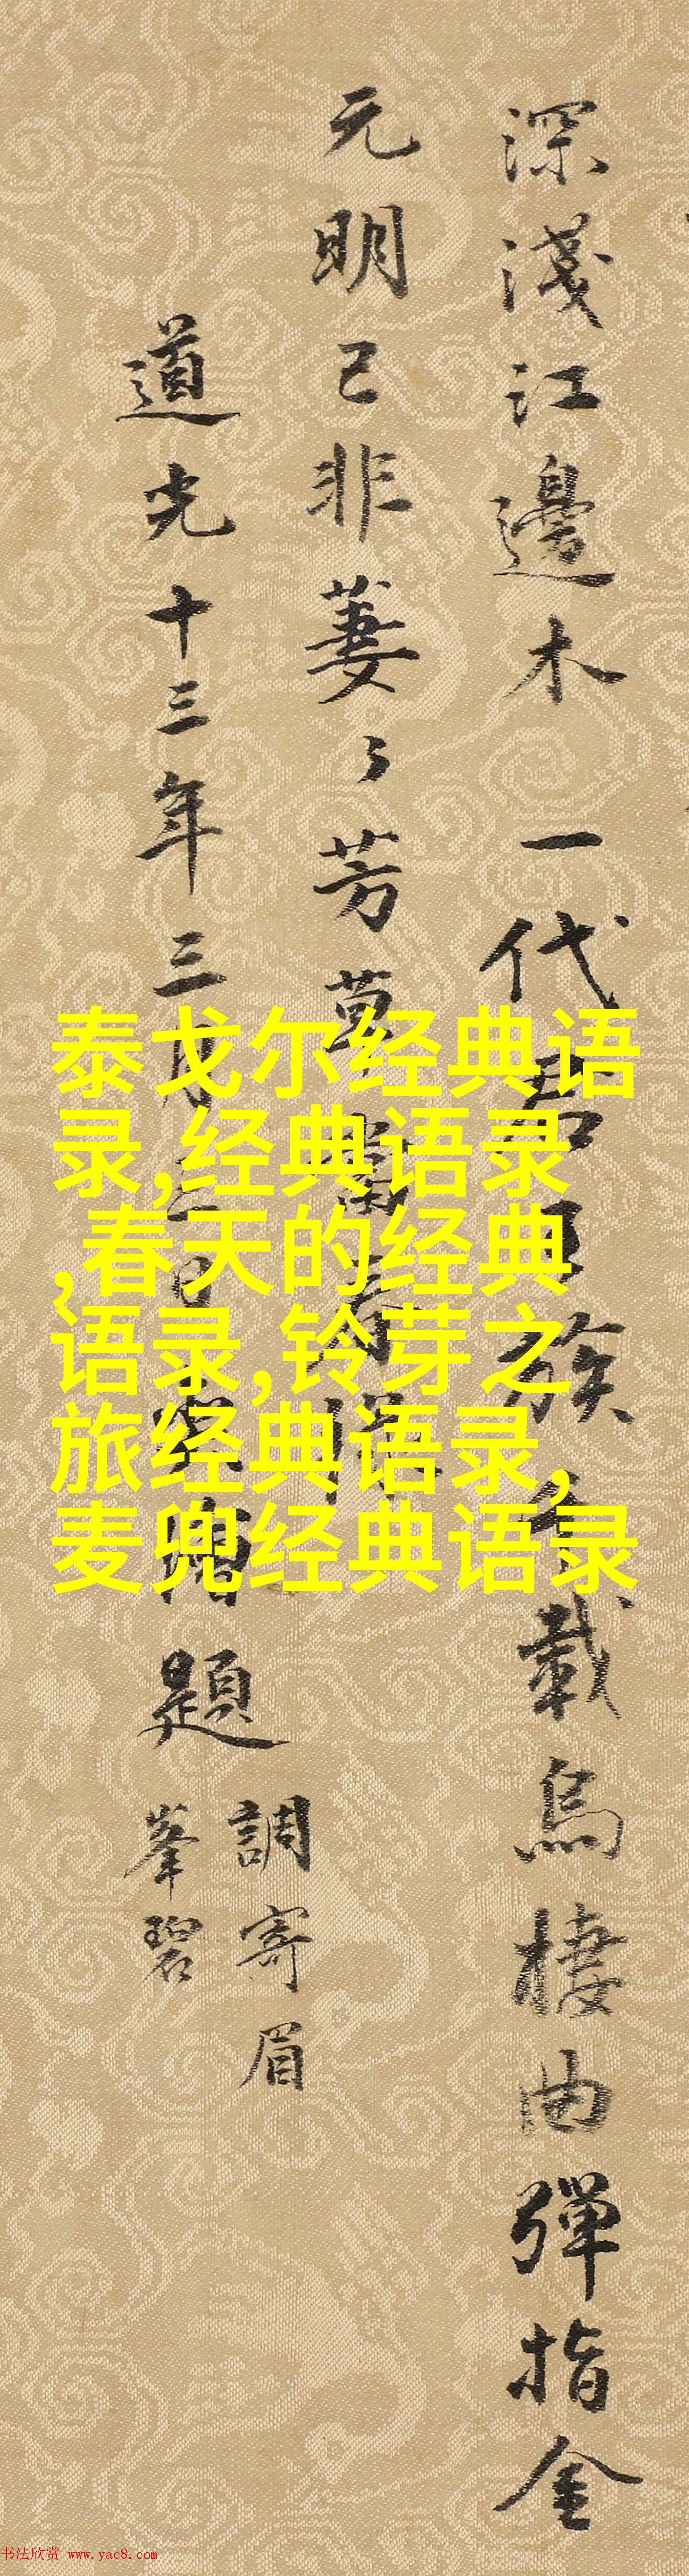 深淺江邊木 一代君臣族 千載烏棲曲 彈指金
元明已非萋〻芳草當春深
道光十三年三月三日
題
調寄眉
峯碧
泰戈尔经典语
录,经典语录
,春天的经典
语录,铃芽之
旅经典语录,
麦兜经典语录
书法欣赏 www.yac8.com